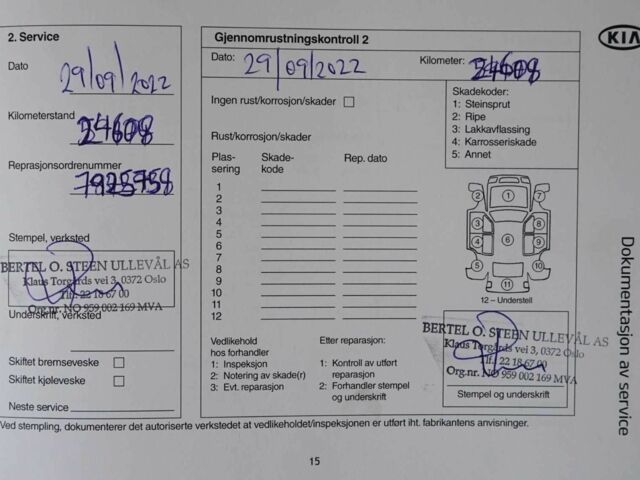 KIA
2. Service
Dato
29/09/2022
Kilometerstand
Reprasjonsordrenummer
Stempel, verksted
BERTEL O. STEEN ULLEVÅL AS
Klaus Torgårds vei 3, 0372 Oslo
Tlf. 22 18 67 00
Org.nr. NO 959 002 169 MVA
Underskrift, verksted
Skiftet bremseveske
Skiftet kjøleveske
Neste service
Gjennomrustningskontroll 2
Dato: 29/09/2022
Kilometer:
Ingen rust/korrosjon/skader
Rust/korrosjon/skader
Plas-sering Skade-kode Rep. dato
1
2
3
4
5
6
7
8
9
10
11
12
Skadekoder:
1: Steinsprut
2: Ripe
3: Lakkavflassing
4: Karrosseriskade
5: Annet
1
2 7
3 8
4 6 9
5 10
11
12 – Understell
Vedlikehold
hos forhandler
1: Inspeksjon
2: Notering av skade(r)
3: Evt. reparasjon
Etter reparasjon:
1: Kontroll av utført
reparasjon
2: Forhandler stempel
og underskrift
BERTEL O. STEEN ULLEVÅL AS
Klaus Torgårds vei 3, 0372 Oslo
Tlf. 22 18 67 00
Org.nr. NO 959 002 169 MVA
Stempel og underskrift
Ved stempling, dokumenterer det autoriserte verkstedet at vedlikeholdet/inspeksjonen er utført iht. fabrikantens anvisninger.
15
Dokumentasjon av service